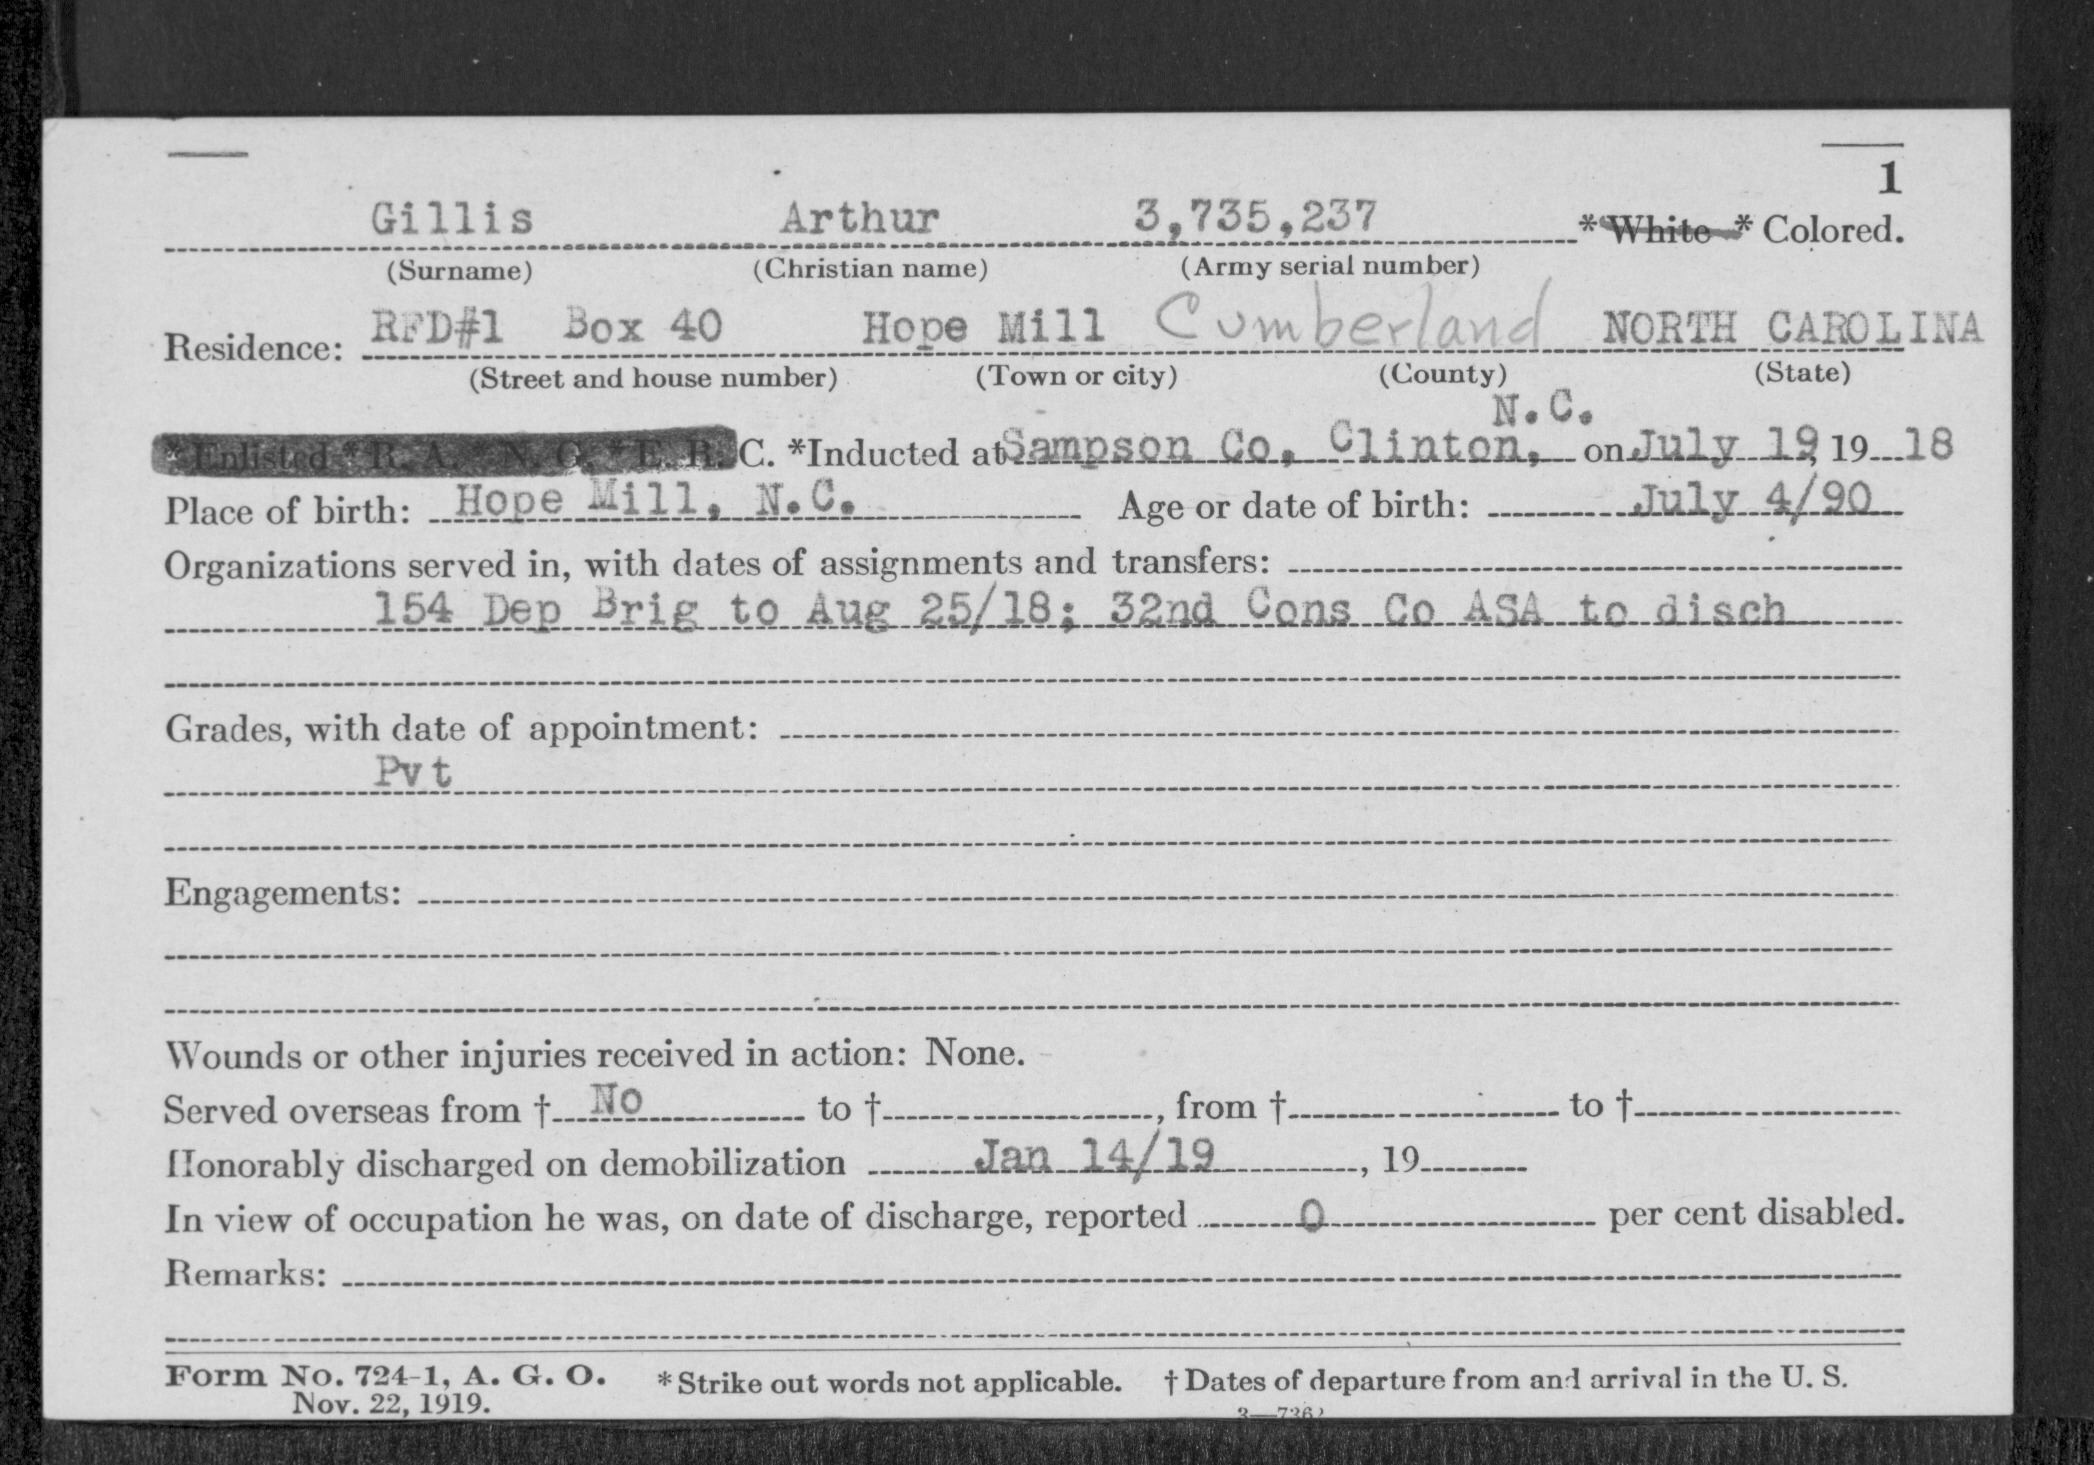 1
Gillis Arthur 3,735,237 *White * Colored.
(Surname) (Christian name) (Army serial number)
Residence: RFD#1 Box 40 Hope Mill Cumberland NORTH CAROLINA
(Street and house number) (Town or city) (County) (State)
N.C.
*Enlisted *R. A. *N. G. *E. R. C. *Inducted at Sampson Co, Clinton, on July 19, 19 18
Place of birth: Hope Mill, N.C. Age or date of birth: July 4/90
Organizations served in, with dates of assignments and transfers:
154 Dep Brig to Aug 25/18; 32nd Cons Co ASA to disch
Grades, with date of appointment:
Pvt
Engagements:
Wounds or other injuries received in action: None.
Served overseas from † No to †, from † to †
Honorably discharged on demobilization Jan 14/19, 19
In view of occupation he was, on date of discharge, reported 0 per cent disabled.
Remarks:
Form No. 724-1, A. G. O. *Strike out words not applicable. † Dates of departure from and arrival in the U. S.
Nov. 22, 1919.